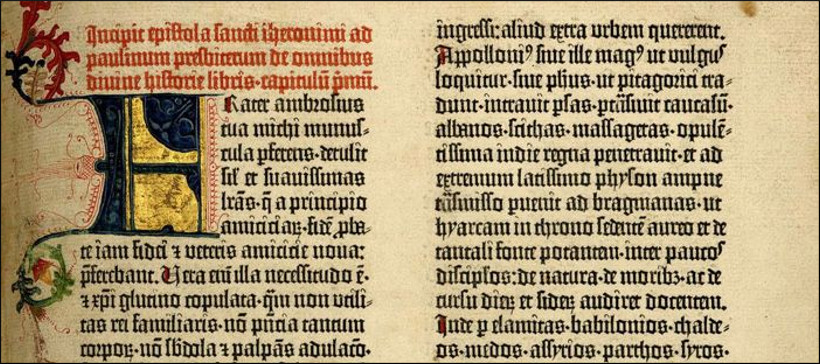 Incipit epistola sancti iheronimi ad
paulinum presbiterum de omnibus
divine historie libris·capitulū p̄mū.
Frater ambrosius
tua michi munus-
cula p̄ferens·detulit
sił et suavissimas
lrās·q̄ a principio
amiciciaꝝ·fidē ꝓba-
te iam fidei ⁊ veteris amicicie nova:
p̄ferebant. Vera eni̅ illa necessitudo ē·
⁊ xp̄i glutino copulata·q̄m non utili-
tas rei familiaris·nō pn̄cia tantum
corpoꝝ·nō sbdola ⁊ palpās adulacō·
ingressi: aliud extra urbem quererent.
Appolloniꝰ sive ille magꝰ ut vulgus
loquitur·sive ph̄us·ut pitagorici tra-
dunt·intravit p̄sas·ptrāsivit caucasū·
albanos·scithas·massagetas·opulē-
tissima indie regna penetravit·et ad
extremum latissimo physon ampne
trāsmisso pvenit ad bragmanas·ut
hyarcam in throno sedentē aureo et de
tantali fonte potantem·inter paucos
discip̄los: de natura·de moribꝫ·ac de
cursu dieꝝ et sideꝝ audiret docentem.
Inde p elamitas·babilonios·chalde-
os·medos·assyrios·parthos·syros·